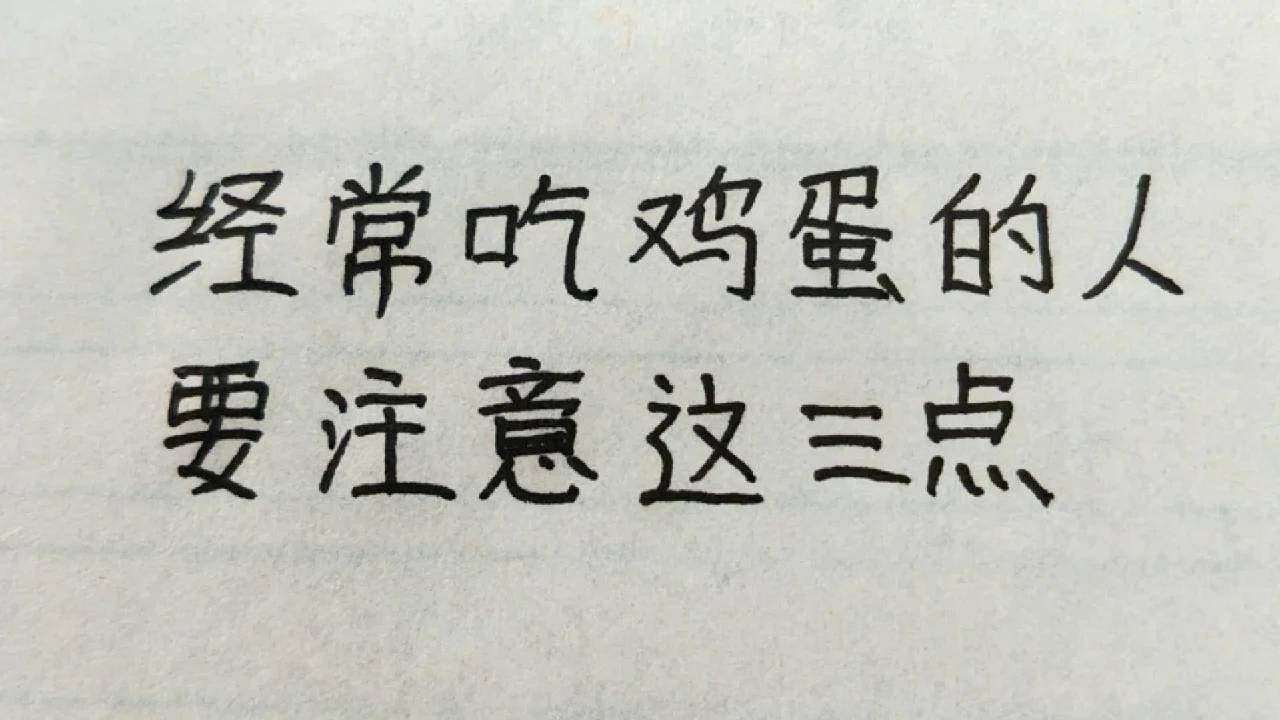 经常吃鸡蛋的人
要注意这三点